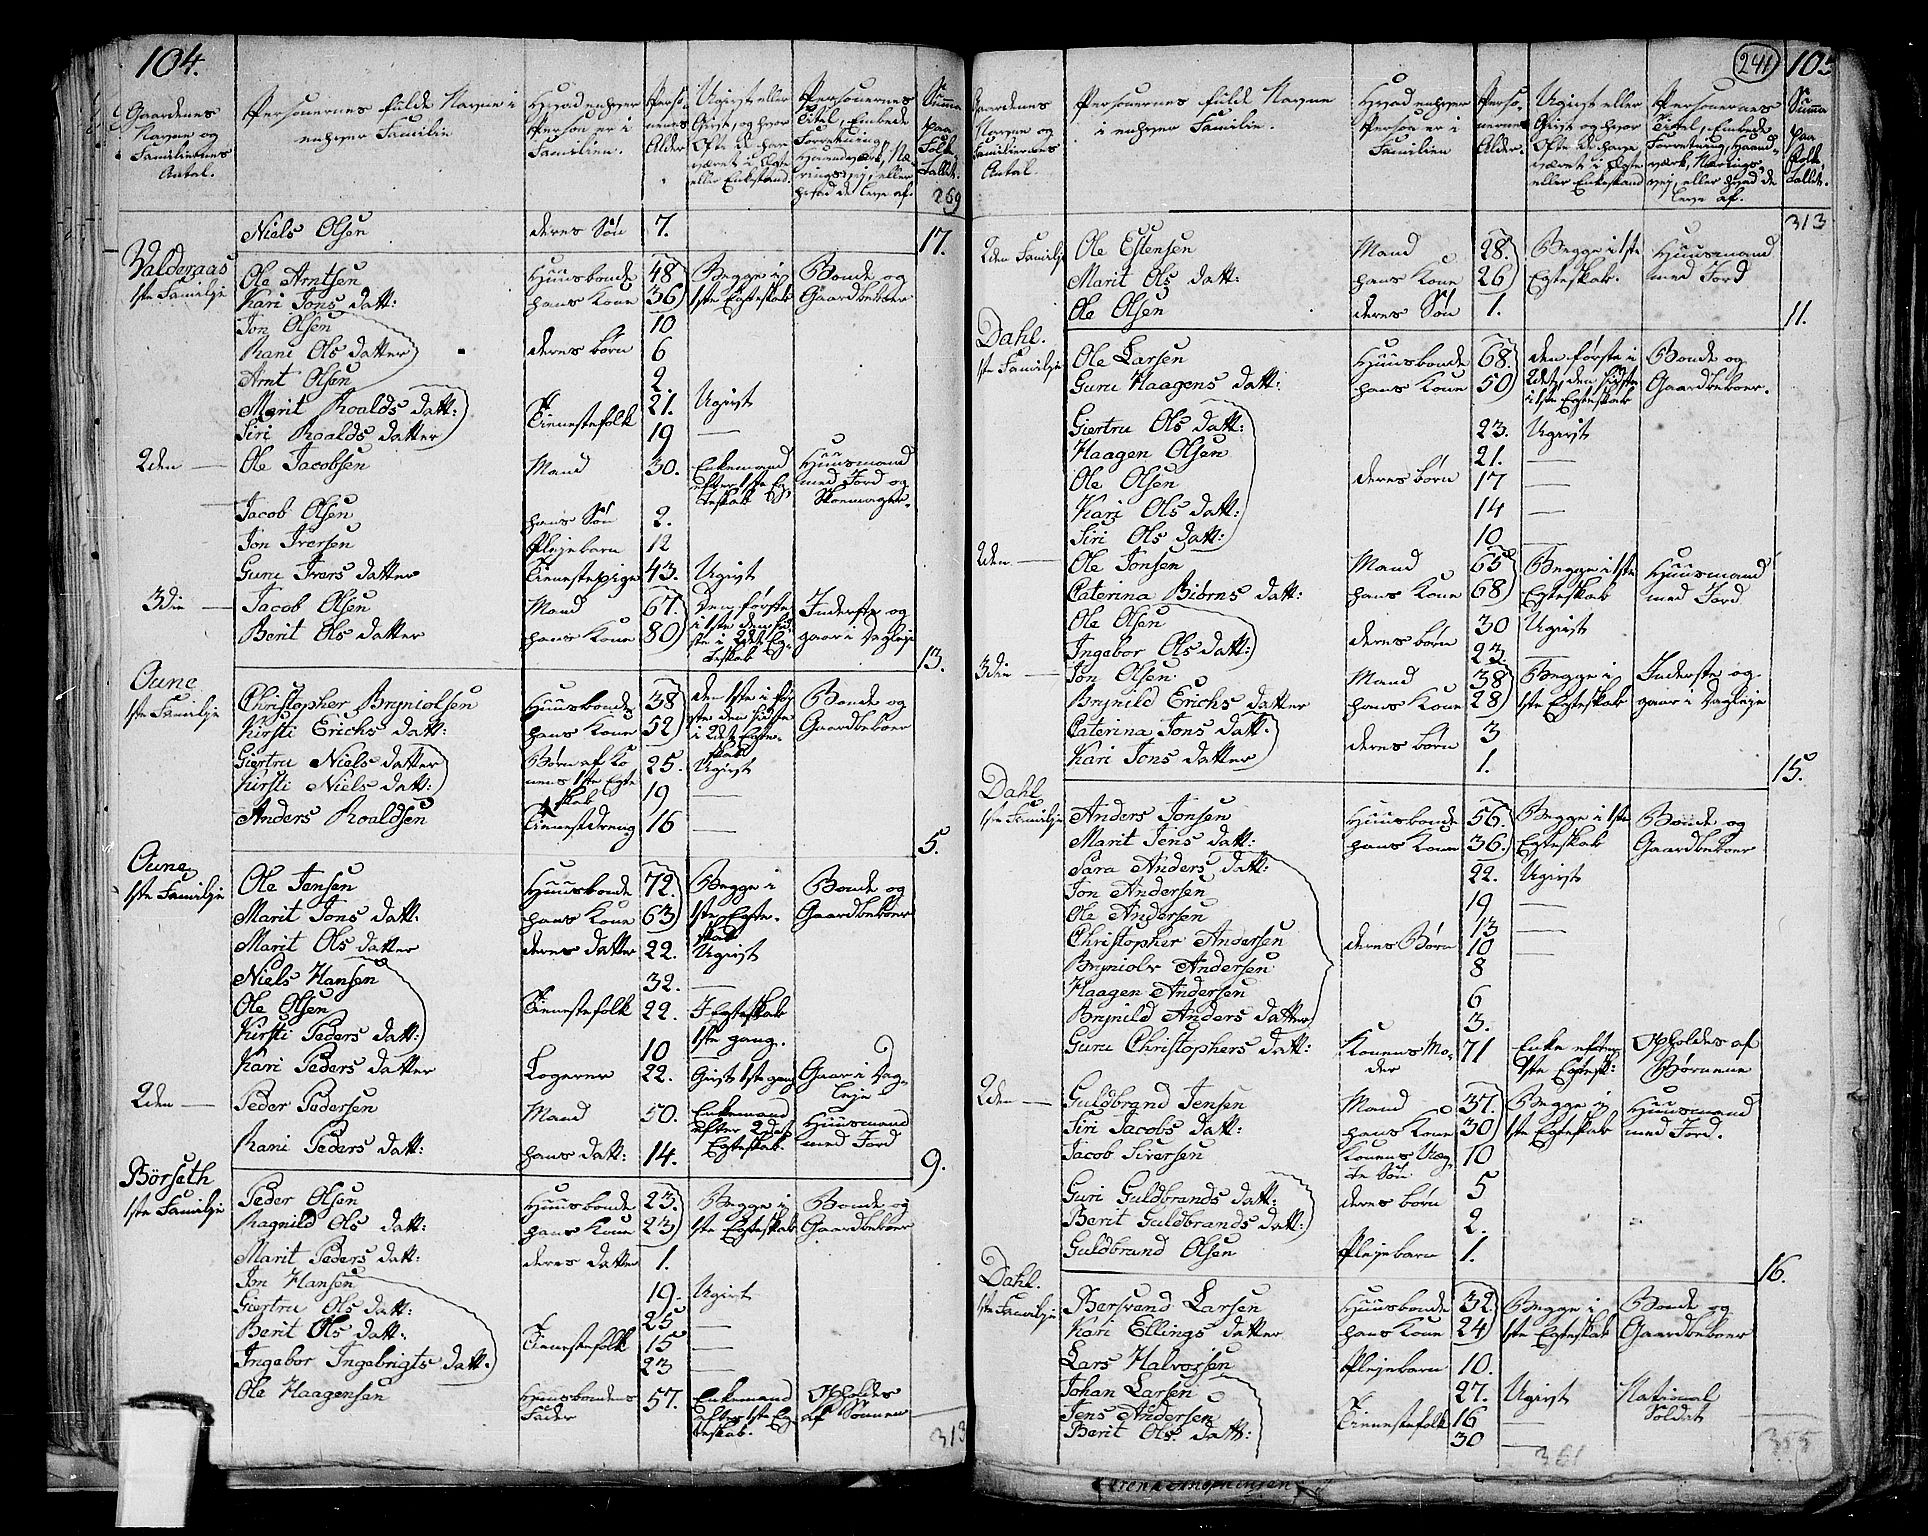 104.
Gaardenes Navne og Familiernes Antal. | Personernes fulde Navne i enhver Familie | Hvad enhver Person er i Familien. | Personernes Alder | Ugivt eller Givt, og hvor Ofte de have været i Ægte eller Enkestand. | Personernes Titel, Embede Forretning Haandværk, Næringsvej, eller hvad de leve af. | Summa paa Folketallet.
269
Niels Olsen deres Søn 7. 17.
Valderaas
1ste Familje Ole Arntsen Huusbonde 48 Begge i 1ste Egteskab Bonde og Gaardbeboer
Kari Jons datt: hans Kone 36
Jon Olsen 10
Rani Ols datter deres børn 6
Arnt Olsen 2.
Marit Roalds datt: Tienestefolk 21. Ugivt
Siri Roalds datter 19 —
2den — Ole Jacobsen Mand 30. Enkemand efter 1ste Egteskab Huusmand med Jord og Skoemager.
Jacob Olsen hans Søn 2.
Jon Iversen Plejebarn 12
Guru Ivers datter Tienestepige 43. Ugivt
3die — Jacob Olsen Mand 67. Den første i 1ste den sidste i 2det Egteskab Inderste og gaar i Dagleje
Berit Ols datter hans Kone 80
13.
Oune
1ste Familje Christopher Brynjolsen Huusbonde 38 den 1ste i første den sidste i 2det Egteskab Bonde og Gaardbeboer
Kirsti Erichs datt: hans Kone 52
Giertru Niels datter Børn af Konens 1ste Egteskab 25. Ugivt
Kirsti Niels datt: 19 —
Anders Roaldsen Tienestdreng 16 —
5.
Oune
1ste Familje Ole Jensen Huusbonde 72. Begge i 1ste Egteskab Bonde og Gaardbeboer
Marit Jons datt: hans Kone 63
Marit Ols datter deres datter 22. Ugivt
Niels Hansen 32. —
Ole Olsen Tienestefolk 22. I Egteskab 1ste gang.
Kirsti Peders datt: 10 —
Kari Peders datter Logerer 22. Givt 1ste gang Gaar i Dagleje
2den — Peder Pedersen Mand 50. Enkemand efter 2det Egteskab. Huusmand med Jord
Rani Peders datt: hans datt: 14.
9.
Börseth
1ste Familje Peder Olsen Huusbonde 23. Begge i 1ste Egteskab Bonde og Gaardbeboer
Ragnild Ols datt: hans Kone 23
Marit Peders datt: deres datter 1.
Jon Hansen 19. Ugivt
Giertru Ols datt: 25 —
Berit Ols datt: Tienestefolk 15 —
Ingebor Ingebrigts datt. 23 —
Ole Haagensen Huusbondens Fader 57. Enkemand efter 1ste Egteskab. Opholdes af Sønnen
313
241 105
Gaardenes Navne og Familiernes Antal. | Personernes fulde Navne i enhver Familie. | Hvad enhver Person er i Familien | Personernes Alder. | Ugivt eller Givt og hvor Ofte de have været i Egte eller Enkestand | Personernes Titel, Embede Forretning, Haandværk, Næringsvej, eller hvad de leve af. | Summa paa Folketallet.
313
2den Familje Ole Estensen Mand 28. Begge i 1ste Egteskab. Huusmand med Jord
Marit Ols datt: hans Kone 26
Ole Olsen deres Søn 1.
11.
Dahl.
1ste Familje Ole Larsen Huusbonde 68. den første i 2det, den sidste i 1ste Egteskab Bonde og Gaardbeboer.
Guru Haagens datt: hans Kone 50
Giertru Ols datt: 23. Ugivt
Haagen Olsen 21. —
Ole Olsen deres børn 17 —
Kari Ols datt: 14 —
Siri Ols datt: 10 —
2den — Ole Jonsen Mand 65 Begge i 1ste Egteskab Huusmand med Jord
Caterina Biörns datt: hans Kone 68
Ole Olsen deres børn 30 Ugivt
Ingebor Ols datt: 23. —
3die — Jon Olsen Mand 38 Begge i 1ste Egteskab Inderste og gaar i Dagleje
Brynild Erichs datter hans Kone 28
Caterina Jons datt: deres børn 3
Kari Jons datter 1.
15.
Dahl
1ste Familje Anders Jonsen Huusbonde 56. Begge i 1ste Egteskab Bonde og Gaardbeboer
Marit Jens datt: hans Kone 36.
Sara Anders datt: 22. Ugivt
Jon Andersen 19 —
Ole Andersen 13 —
Christopher Andersen deres Børn 10 —
Brynjolv Andersen 8
Haagen Andersen 6
Brynild Anders datter 3.
Guru Christophers datt: Konens Moder 71 Enke efter 1ste Egtesk: Opholdes af Børnene
2den — Guldbrand Jensen Mand 37. Begge i 1ste Egteskab Huusmand med Jord.
Siri Jacobs datt: hans Kone 30
Jacob Siversen Konens Uægte Søn 10
Guri Guldbrands datt: deres børn 5
Berit Guldbrands datt: 2.
Guldbrand Olsen Plejebarn 1.
16.
Dahl.
1ste Familje Bersvend Larsen Huusbonde 32. Begge i 1ste Egteskab Bonde og Gaardbeboer
Kari Ellings datter hans Kone 24
Lars Halvorsen Plejebarn 10.
Johan Larsen 27. Ugivt National Soldat
Jens Andersen Tienestefolk 16 —
Berit Ols. datt: 30 —
361 355